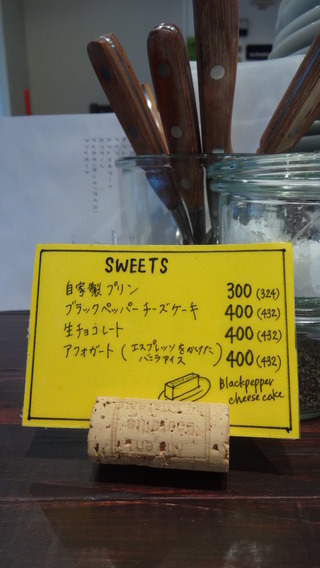 SWEETS
自家製プリン 300 (324)
ブラックペッパーチーズケーキ 400 (432)
生チョコレート 400 (432)
アフォガート (エスプレッソをかけたバニラアイス) 400 (432)
Blackpepper
cheese cake